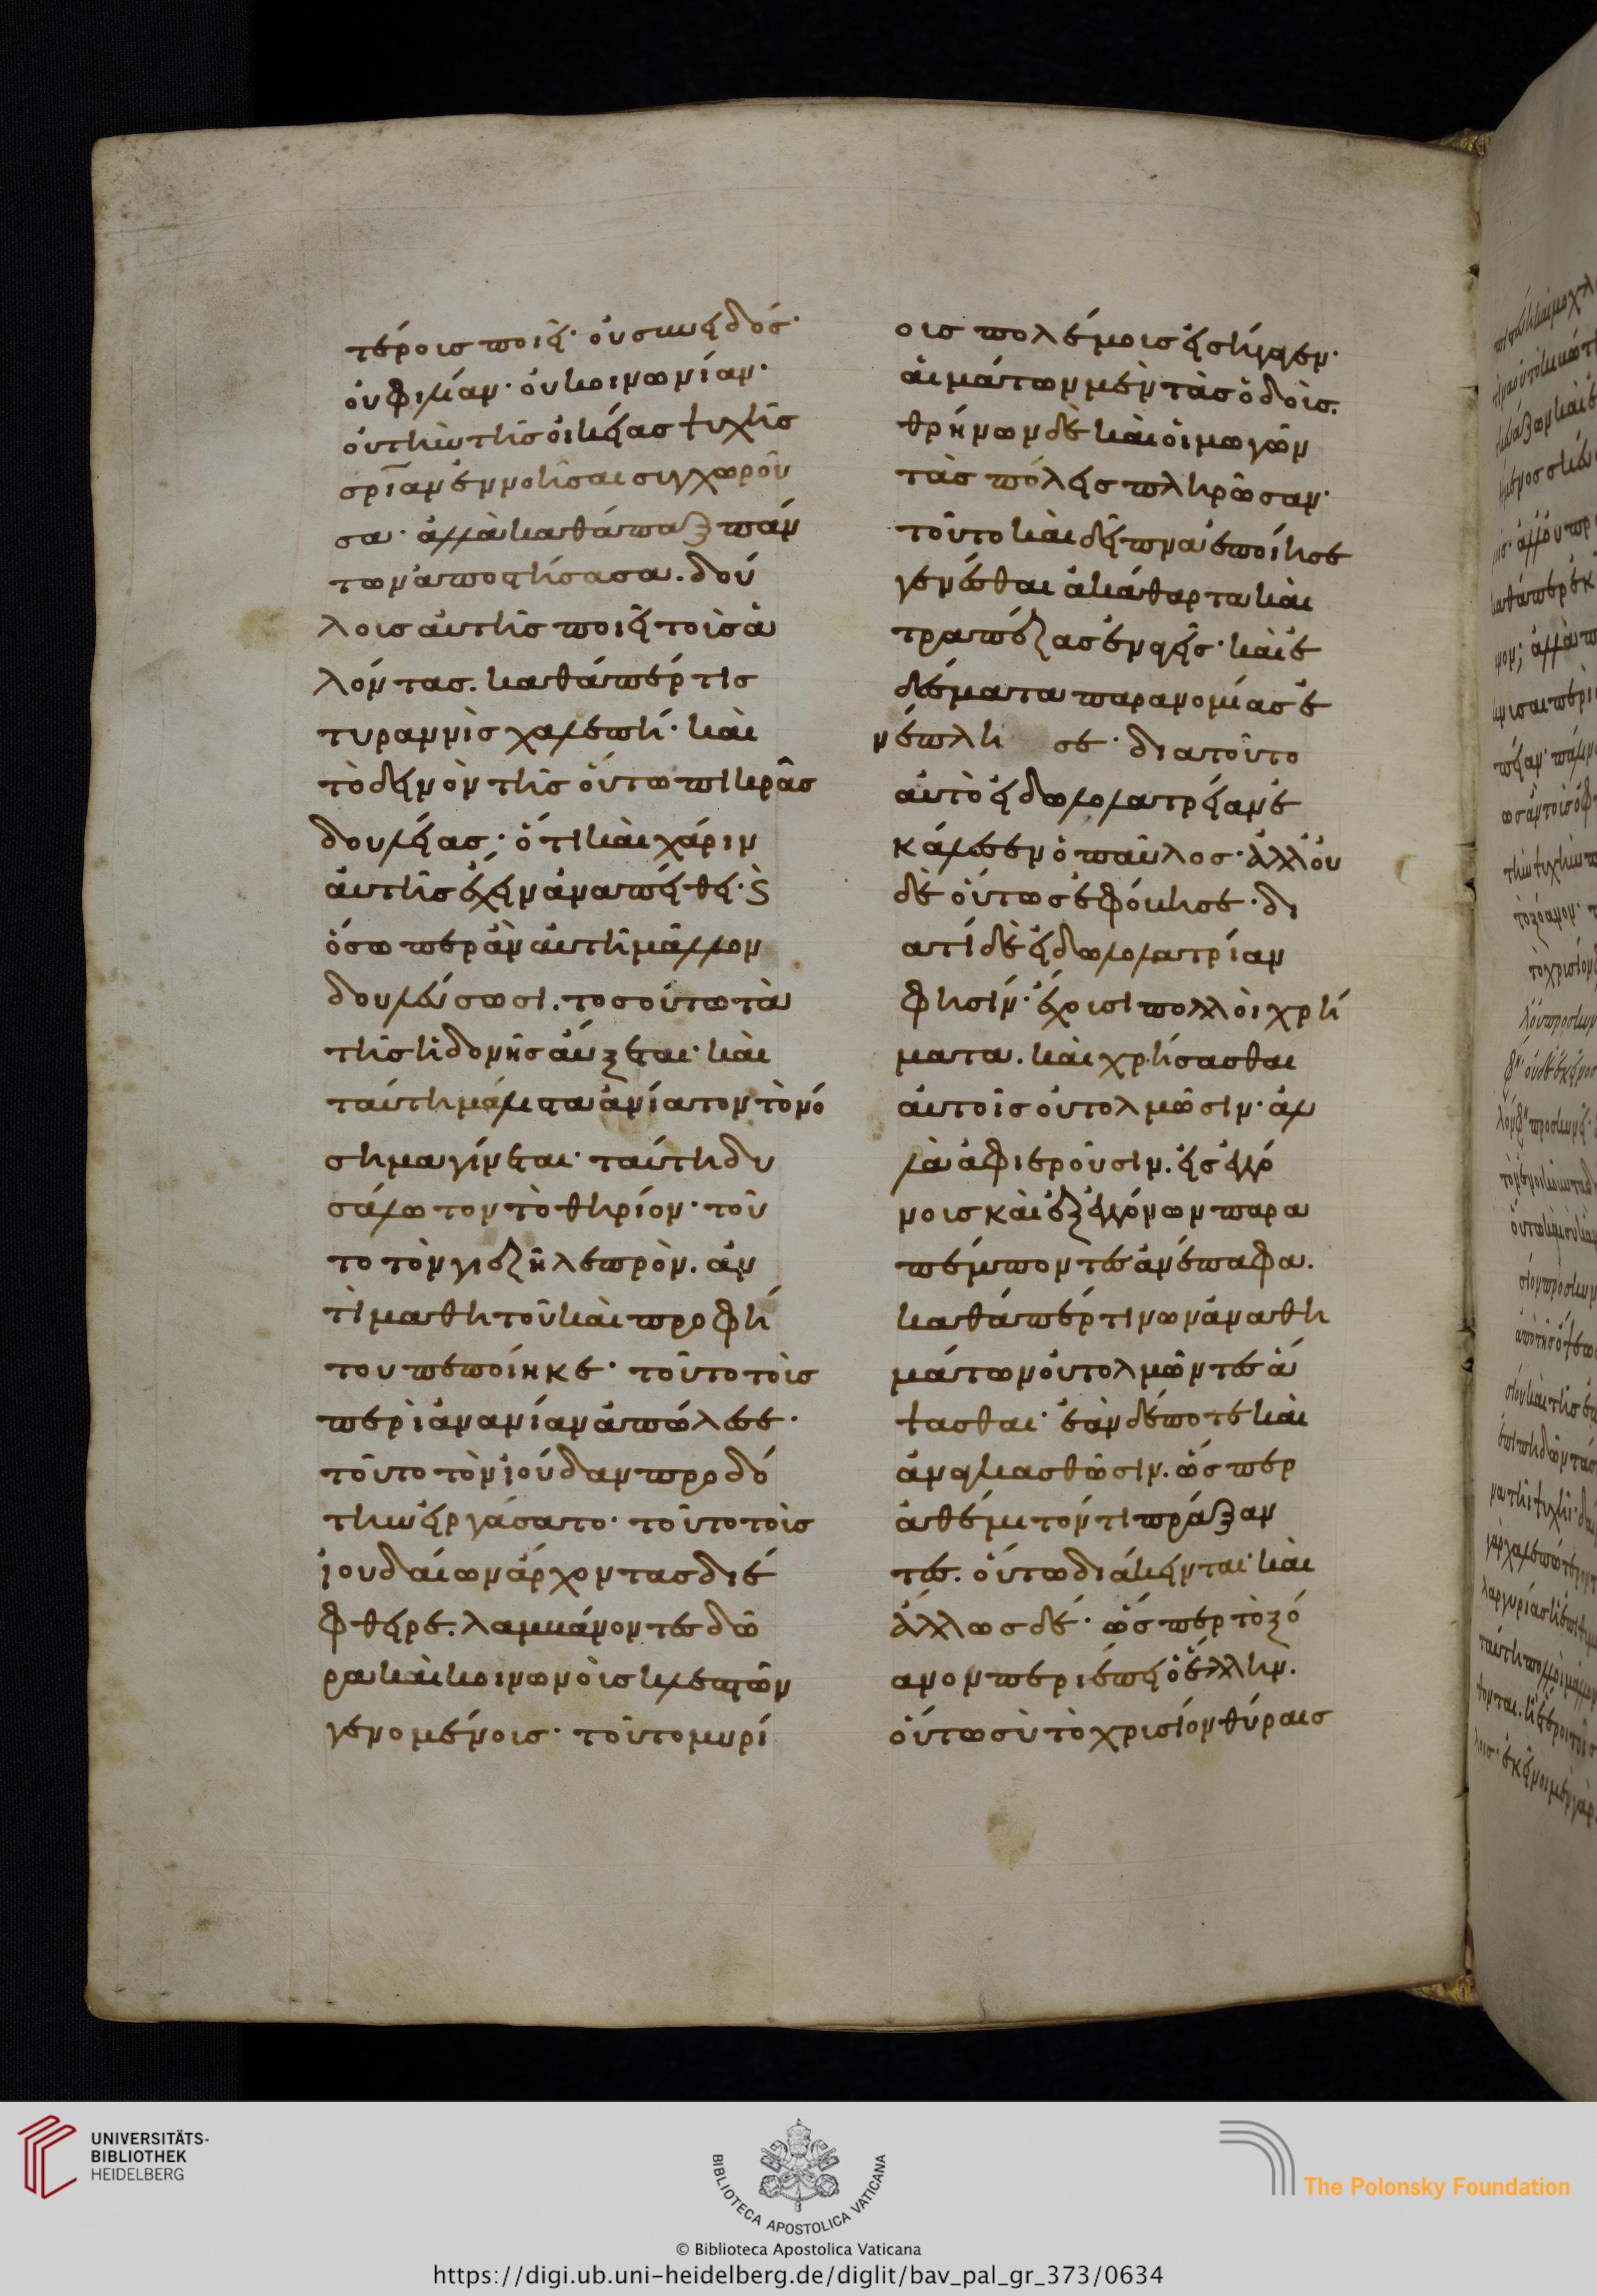 τέροις ποιεῖ· οὐ συνειδός·
οὐ φιλίαν· οὐ κοινωνίαν·
οὐ τὴν τῆς οἰκείας ψυχῆς
σρίαν ἐννοῆσαι συγχωροῦ
σα· ἀλλὰ καθάπαξ πάν
των ἀποστήσασα. δού
λοις αὐτῆς ποιεῖ τοὶς ἁ
λόντας. καθάπέρ τις
τυραννὶς χαλεπή· καὶ
τὸ δεινὸν τῆς οὕτω πικρᾶς
δουλείας· ὅτι καὶ χάριν
αὐτῆς ἔχειν ἀναπείθει· Ϛ
ὅσω περ ἂν αὐτῆ μᾶλλον
δουλεύσωσι. τοσούτω τὰ
τῆς ἡδονῆς αὔξεται· καὶ
ταύτη μάλιστα ἀνίατον τὸ νό
σημα γίνεται· ταύτη δυ
σάλωτον τὸ θηρίον· τοῦ
το τὸν γιεζῆ λεπρὸν. ἀν
τὶ μαθητοῦ καὶ προφή
του πεποίηκε· τοῦτο τοὶς
περὶ ἀνανίαν ἀπώλεσε·
τοῦτο τὸν ἰούδαν προδό
την εἰργάσατο· τοῦτο τοὶς
ἰουδαίων ἄρχοντας διέ
φθειρε. λαμβάνοντες δῶ
ρα καὶ κοινωνοὶς κλεπτῶν
γενομένοις· τοῦτο μυρί
οις πολέμοις εἰσήγαγεν·
αἱμάτων μὲν τὰς ὁδοὶς.
θρήνων δὲ καὶ οἰμωγῶν
τὰς πόλεις πληρῶσαν·
τοῦτο καὶ δεῖπνα ἐποίησε
γενέσθαι ἀκάθαρτα καὶ
τραπέζας ἐναγεῖς· καὶ ἐ
δέσματα παρανομίας ἐ
νέπλη σε· διατοῦτο
αὐτὸ εἰδωλολατρείαν ἐ
κάλεσεν ὁ παῦλος· ἀλλ' οὐ
δὲ οὕτως ἐφόβησε· δι
ατί δὲ εἰδωλολατρίαν
φησίν· ἔχοισι πολλοὶ χρή
ματα. καὶ χρήσασθαι
αὐτοῖς οὐ τολμῶσιν· ἀλ
λὰ ἀφιεροῦσιν. εἰς ἐγγό
νοις καὶ ἐξ ἐγγόνων παρα
πέμποντες ἀνέπαφα.
καθάπέρ τινων ἀναθη
μάτων οὐ τολμῶντες ἅ
ψασθαι· ἐὰν δέποτε καὶ
ἀναγκασθῶσιν. ὥσπερ
ἀθέμιτόν τι πράξαν
τες. οὕτω διάκεινται· καὶ
ἄλλως δέ· ὥσπερ τὸ ξό
ανον περιέπει ὁ ἕλλην.
οὕτω σὺ τὸ χρυσίον θύραις
UNIVERSITÄTS-
BIBLIOTHEK
HEIDELBERG
BIBLIOTECA APOSTOLICA VATICANA
The Polonsky Foundation
© Biblioteca Apostolica Vaticana
https://digi.ub.uni-heidelberg.de/diglit/bav_pal_gr_373/0634